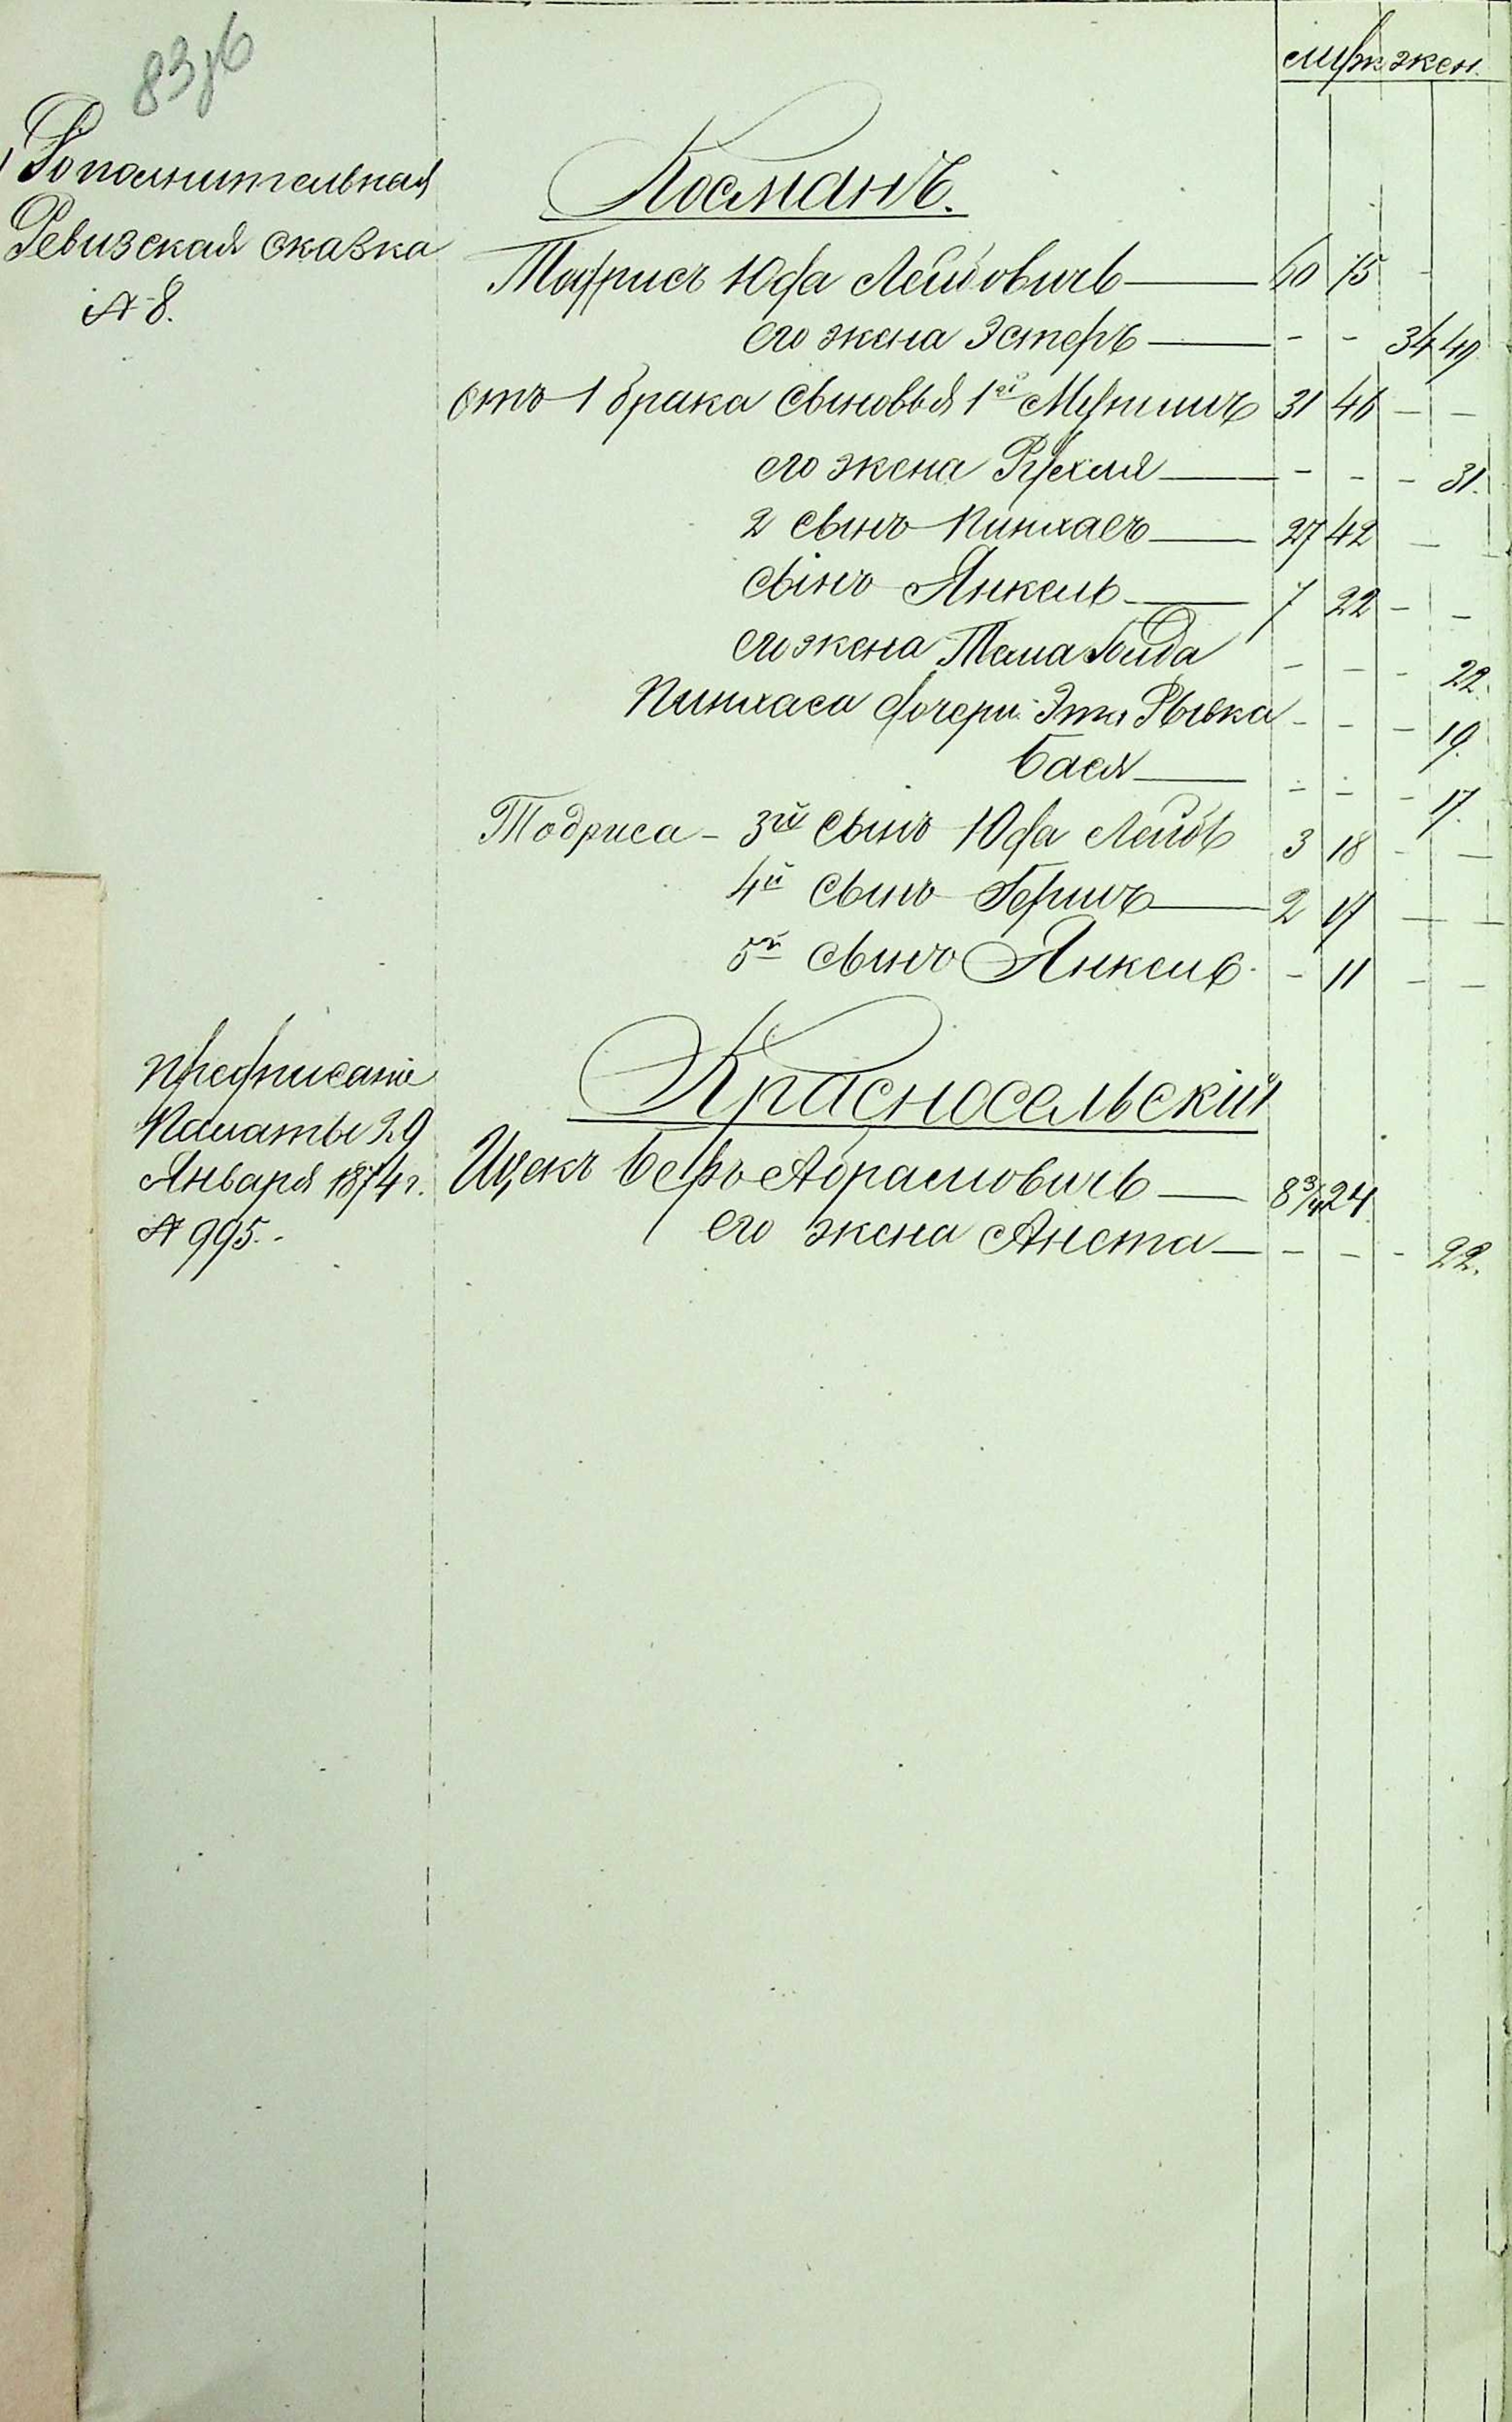 83об
муж. жен.
Дополнительная
Ревизская сказка
№ 8.
Косманъ.
Тодрисъ Юда Лейбовичъ 60 75 -
его жена Эстеръ - - 34 49
отъ 1 брака сыновья 1й 31 46 - -
его жена Рухля - - - 31.
2 сынъ Пинхасъ 27 42 -
сынъ Янкель 7 22 - -
его жена - - - 22.
Пинхаса дочери Эта Рывка - - - 19.
Бася - - - 17.
Тодриса - 3й сынъ Юда Лейбъ 3 18 - -
4й сынъ Гершъ 2 17 - -
5й сынъ Янкель - 11 - -
Предписаніе
Палаты 29
Января 1874 г.
№ 995.
Красносельскій
Ицекъ Беръ Абрамовичъ 8 3/4 24
его жена Анета - - - 22.